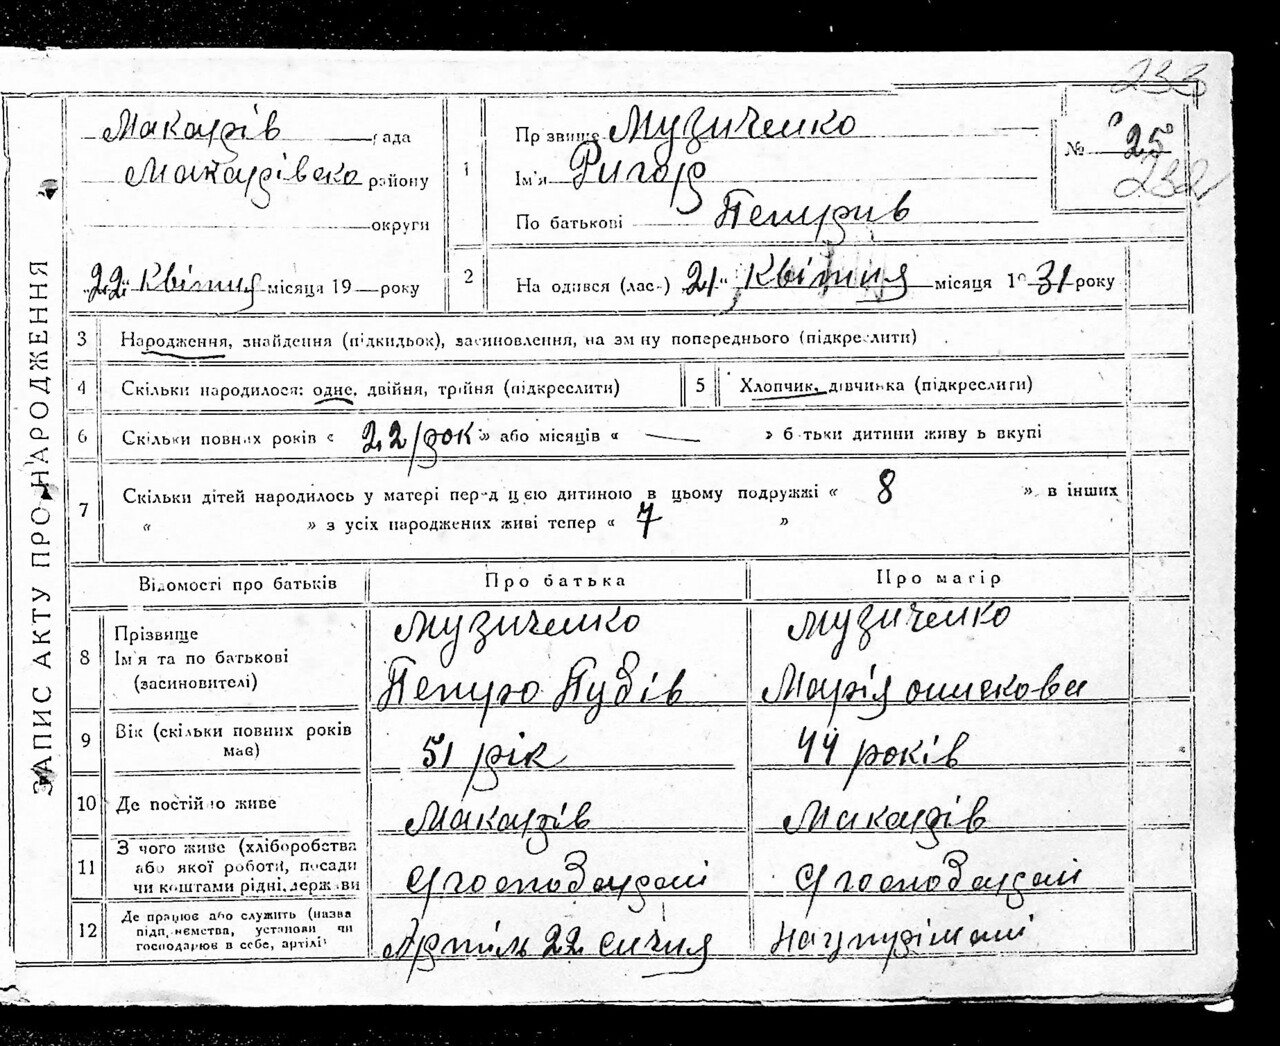 233
ЗАПИС АКТУ ПРО НАРОДЖЕННЯ
Макарів рада
Макарівсько району
округи
„22“ Квітня місяця 19 — року
1
Прізвище Музиченко
Ім'я Ригор
По батькові Петрів
№ 25
232
2
Народився (лась) „21“ Квітня місяця 1931 року
3 Народження, знайдення (підкидьок), засиновлення, на зміну попереднього (підкреслити)
4 Скільки народилося: одне, двійня, трійня (підкреслити)
5 Хлопчик, дівчинка (підкреслити)
6 Скільки повних років « 22 рок » або місяців « — » батьки дитини живуть вкупі
7 Скільки дітей народилось у матері перед цією дитиною в цьому подружжі « 8 », в інших
« » з усіх народжених живі тепер « 7 »
Відомості про батьків Про батька Про матір
8 Прізвище Музиченко Музиченко
Ім'я та по батькові Петро Мария
(засиновителі)
9 Вік (скільки повних років має) 51 рік 44 років
10 Де постійно живе Макарів Макарів
11 З чого живе (хліборобства
або якої роботи, посади
чи коштами рідні, держави
12 Де працює або служить (назва
підприємства, установи чи
господарює в себе, артілі)
Артіль 22 січня